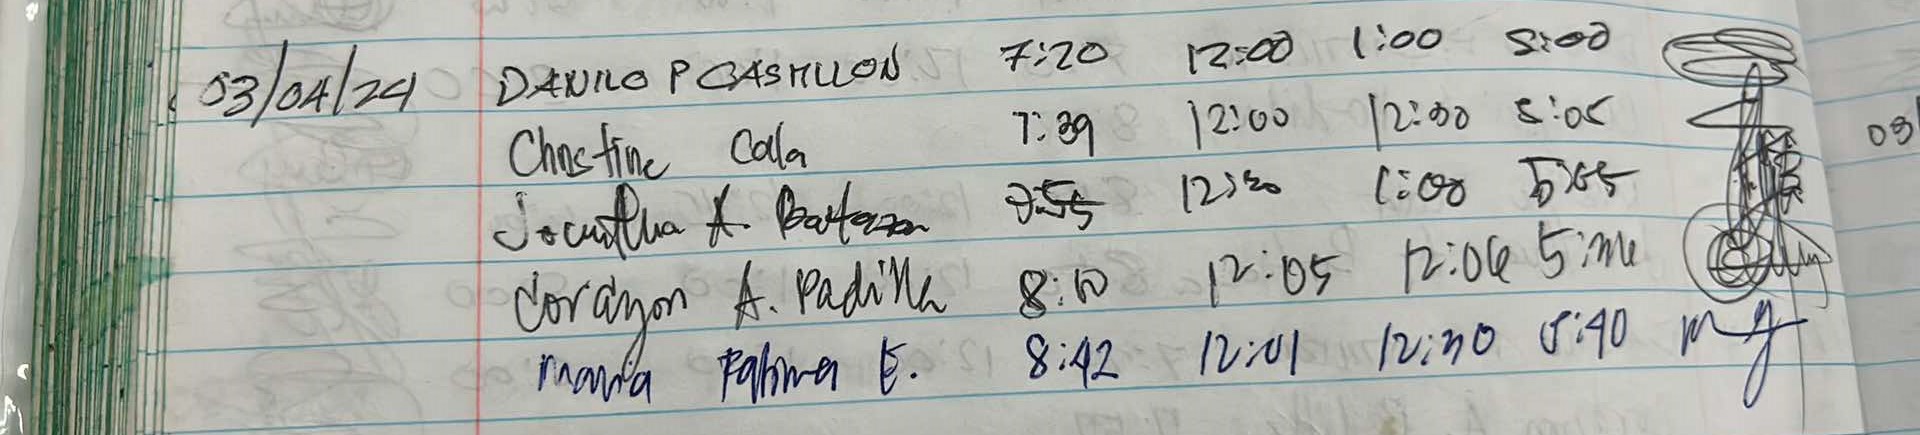 03/04/24 DANILO P CASTILLON 7:20 12:00 1:00 5:00
Christine Cala 7:39 12:00 12:30 5:05
A. 12:30 1:00 5:05
Corazon A. Padilla 8:10 12:05 12:06
Maria Fatima E. 8:42 12:01 12:30 5:40
03/